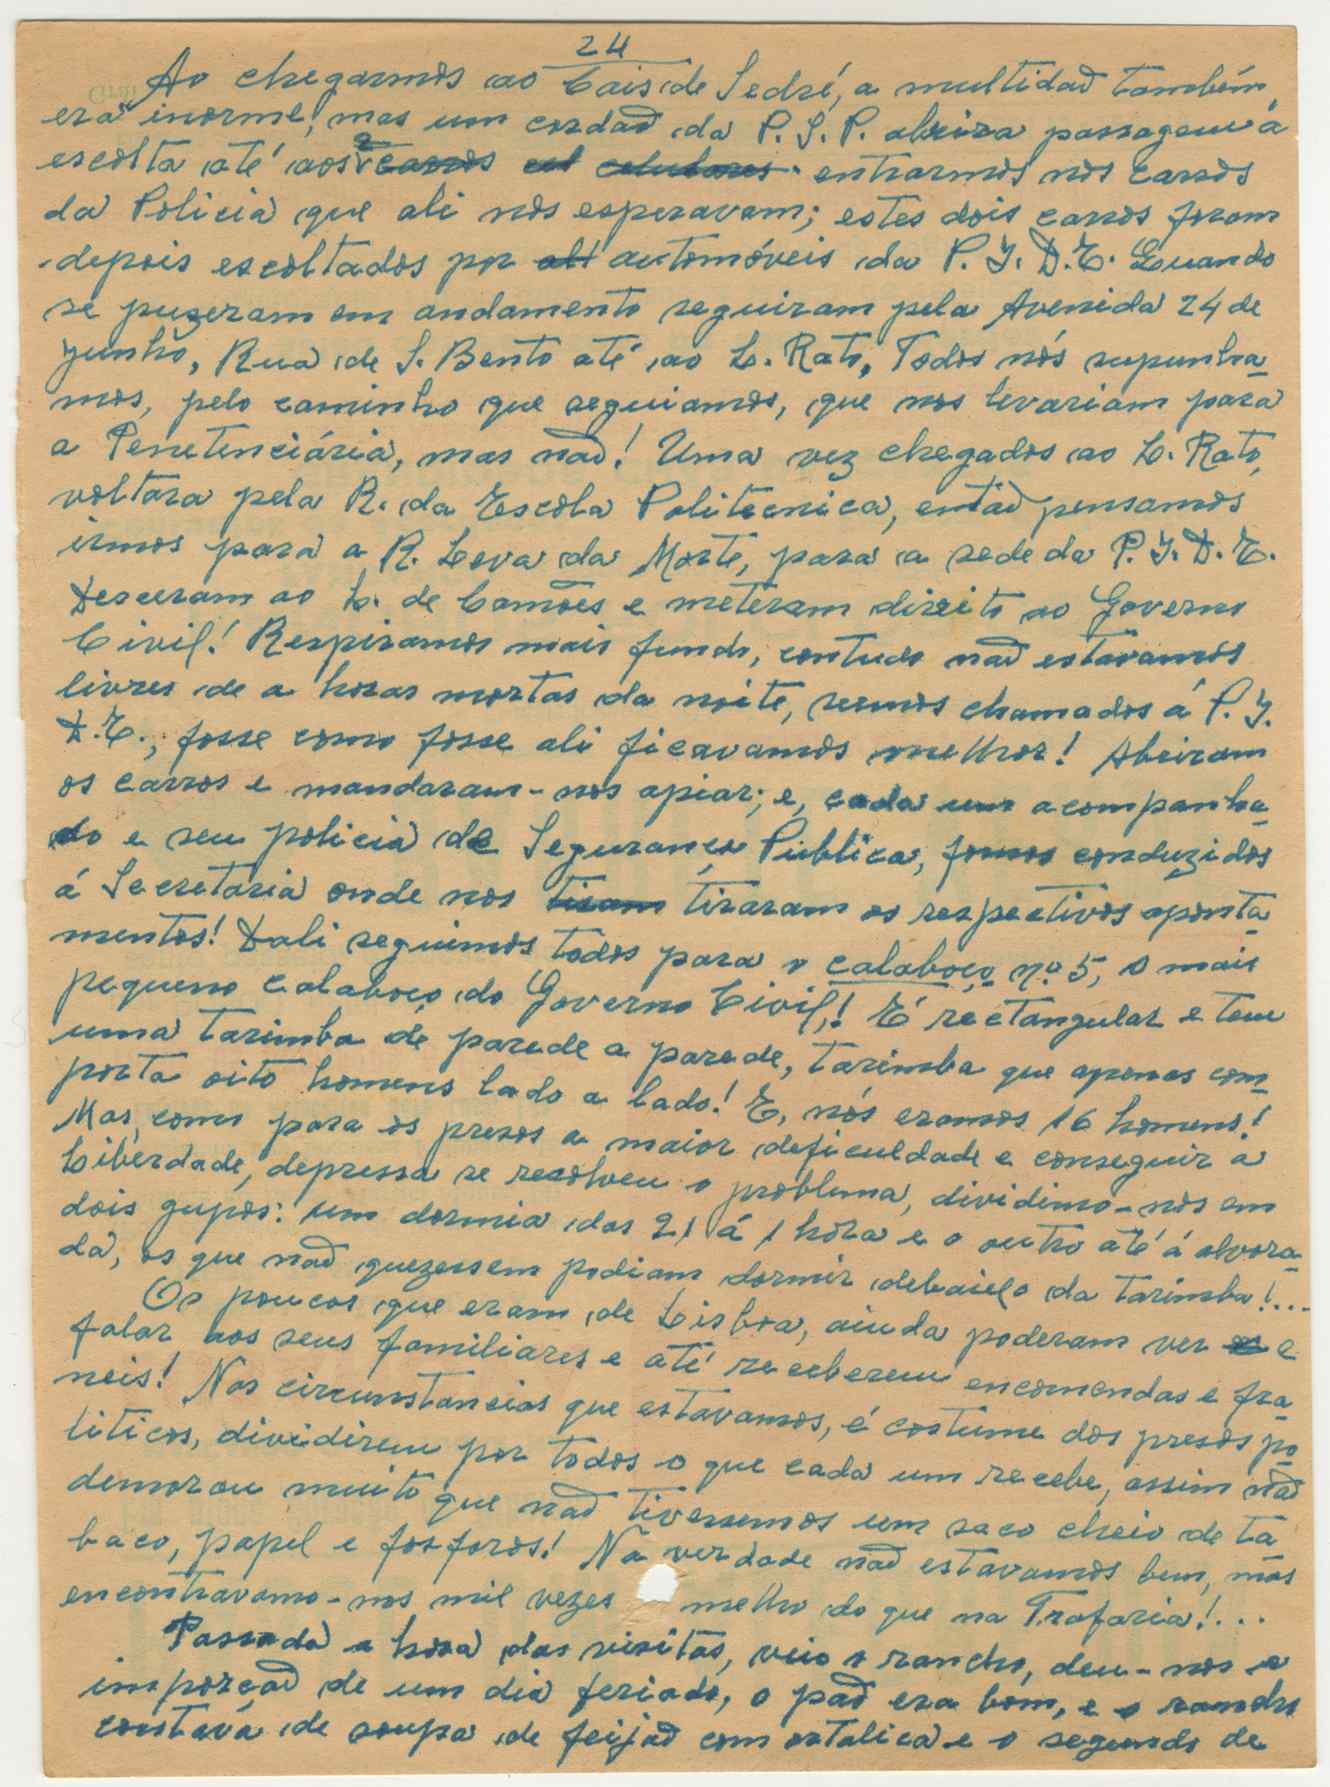 24
Ao chegarmos ao Cais de Sedré, a multidaõ também
era inorme, mas um cordaõ da P. S. P. abrira passagem á
escolta até aos 2 carros cel celulares entrarmos nos carros
da Policia que ali nos esperavam; estes dois carros foram
depois escoltados por alt automóveis da P. I. D. E. Quando
se puzeram em andamento seguiram pela Avenida 24 de
Junho, Rua de S. Bento até ao L. Rato, Todos nós supunha-
mos, pelo caminho que seguiamos, que nos levariam para
a Penetenciária, mas naõ! Uma vez chegados ao L. Rato,
voltara pela R. da Escola Politecnica, entaõ pensamos
irmos para a R. Leva da Morte, para a sede da P. I. D. E.
Desceram ao L. de Camões e meteram direito ao Governo
Civil! Respiramos mais fundo, contudo naõ estávamos
livres de a horas mortas da noite, sermos chamados á P. I.
D. E., fosse como fosse ali ficavamos melhor! Abriram
os carros e mandaram-nos apiar; e, cada um acompanha-
do e seu policia de Segurança Pública, fomos conduzidos
á Secretaria onde nos tiram tiraram os respectivos aponta-
mentos! Dali seguimos todos para o calaboço nº 5, o mais
pequeno calaboço do Governo Civil,! É rectangular e tem
uma tarimba de parede a parede, tarimba que apenas com-
porta oito homens lado a lado! E, nós eramos 16 homens!
Mas, como para os presos a maior deficuldade e conseguir a
Liberdade, depressa se resolveu o problema, dividimo-nos em
dois gupos: um dormia das 21 á 1 hora e o outro até á alvora-
da, os que naõ quezessem podiam dormir debaixo da tarimba!...
Os poucos que eram de Lisboa, ainda poderam ver os e
falar aos seus familiares e até receberem encomendas e fra-
neis! Nas circunstancias que estavamos, é costume dos presos po-
liticos, dividirem por todos o que cada um recebe, assim naõ
demorou muito que naõ tivessemos um saco cheio de ta-
baco, papel e fosforos! Na verdade naõ estavamos bem, mas
encontravamo-nos mil vezes melhor do que na Trafaria!...
Passada a hora das visitas, veio o rancho, deu-nos a
imporçaõ de um dia feriado, o paõ era bom, e o rancho
constava de soupa de feijaõ com ortalica e o segundo de